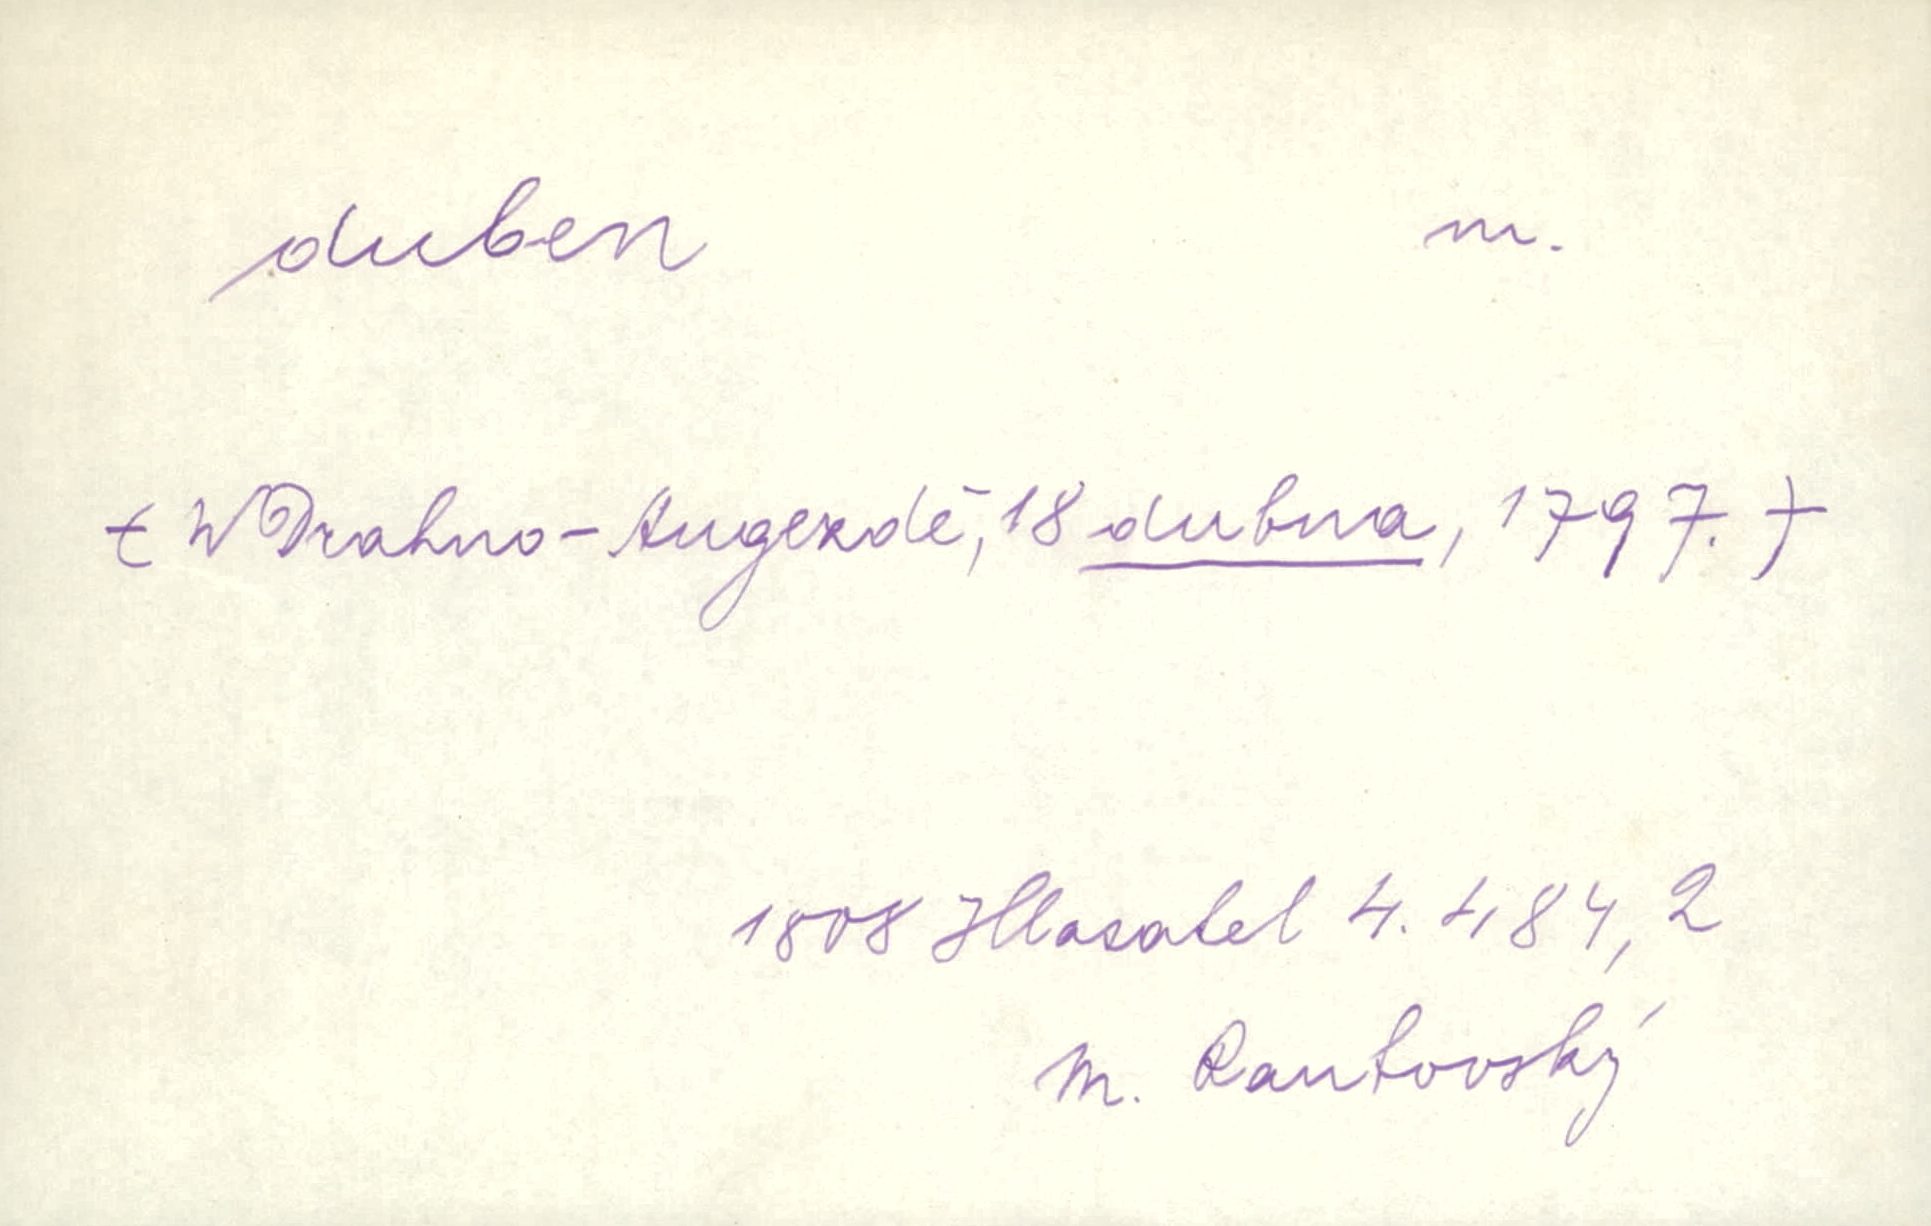 duben m.
( W Drahno-Augezdě, 18 dubna, 1797. )
1808 Hlasatel 4. 484, 2
M. Rautovský